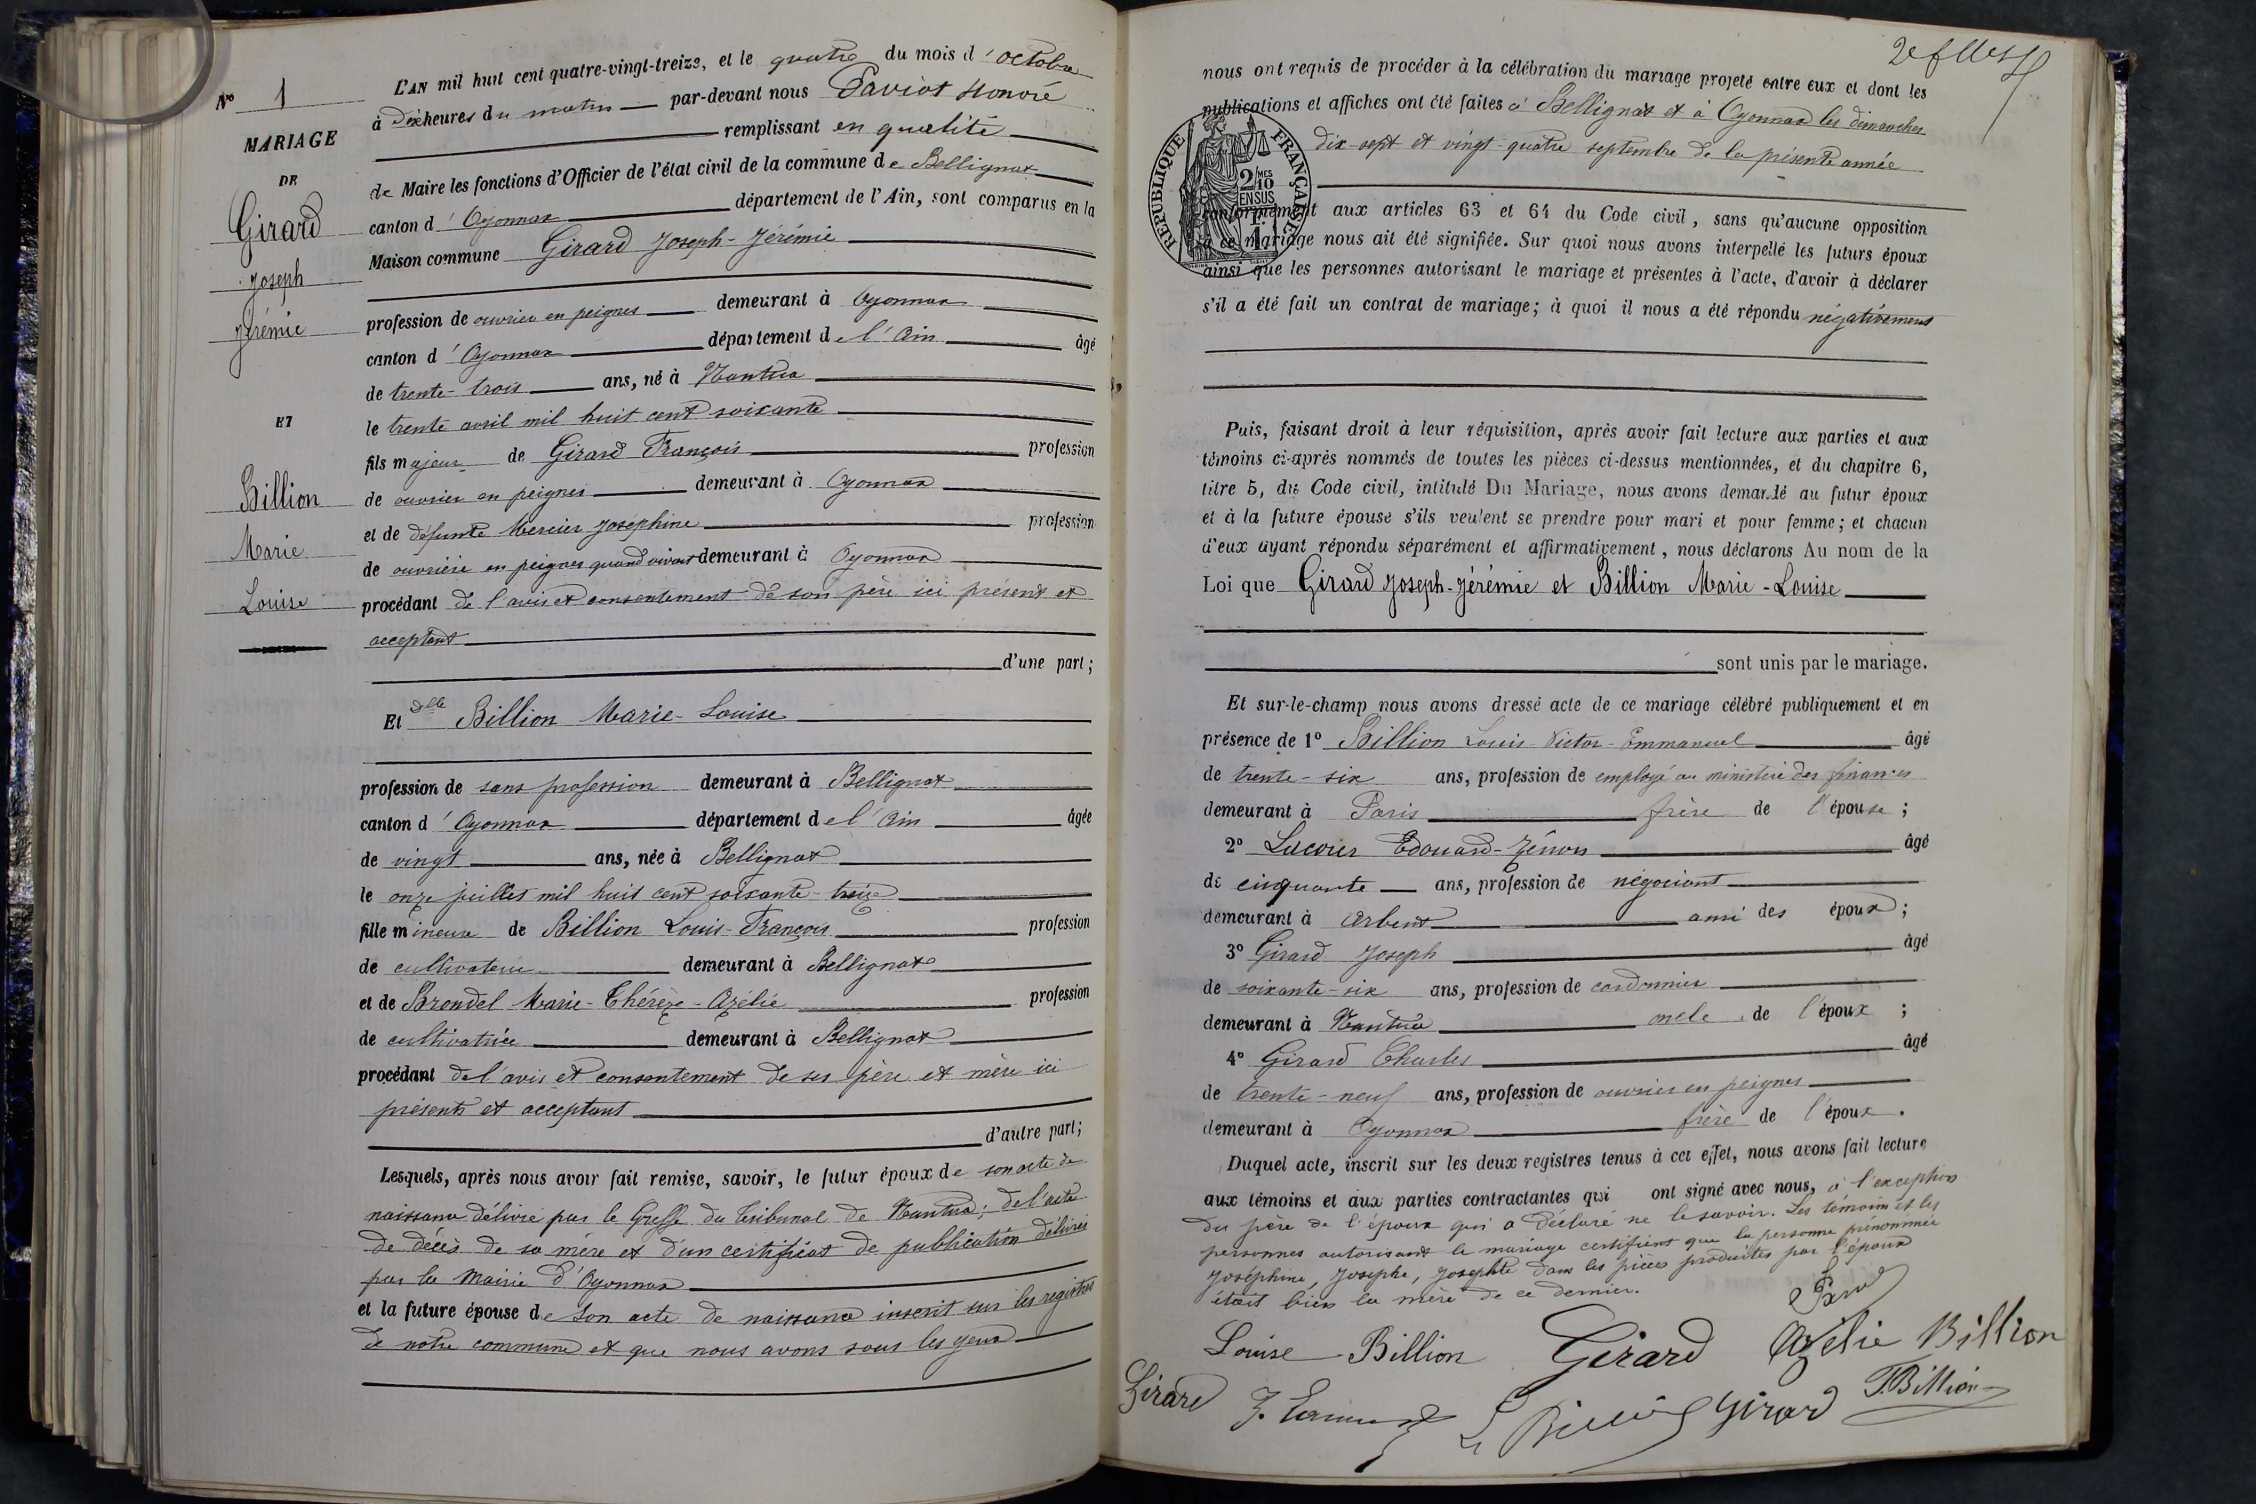 N° 1
MARIAGE
DE
Girard
Joseph
Jérémie
ET
Billion
Marie
Louise
L'AN mil huit cent quatre-vingt-treize, et le quatre du mois d'octobre
à dix heures du matin par-devant nous Paviot Honoré
remplissant en qualité
de Maire les fonctions d'Officier de l'état civil de la commune de Bellignat
canton d'Oyonnax département de l'Ain, sont comparus en la
Maison commune Girard Joseph-Jérémie
profession de ouvrier en peignes demeurant à Oyonnax
canton d'Oyonnax département de l'Ain âgé
de trente-trois ans, né à Nantua
le trente avril mil huit cent soixante
fils majeur de Girard François profession
de ouvrier en peignes demeurant à Oyonnax
et de défunte Mercier Joséphine profession
de ouvrière en peignes quand vivait demeurant à Oyonnax
procédant de l'avis et consentement de son père ici présent et
acceptant
d'une part;
Et dlle Billion Marie-Louise
profession de sans profession demeurant à Bellignat
canton d'Oyonnax département de l'Ain âgée
de vingt ans, née à Bellignat
le onze juillet mil huit cent soixante-treize
fille mineure de Billion Louis-François profession
de cultivateur demeurant à Bellignat
et de Brondel Marie-Thérèze-Azélie profession
de cultivatrice demeurant à Bellignat
procédant de l'avis et consentement de ses père et mère ici
présents et acceptant
d'autre part;
Lesquels, après nous avoir fait remise, savoir, le futur époux de son acte de
naissance délivré par le Greffe du Tribunal de Nantua; de l'acte
de décès de sa mère et d'un certificat de publication délivrés
par la Mairie d'Oyonnax
et la future épouse de son acte de naissance inscrit sur les registres
de notre commune et que nous avons sous les yeux
nous ont requis de procéder à la célébration du mariage projeté entre eux et dont les
publications et affiches ont été faites à Bellignat et à Oyonnax les dimanches
dix-sept et vingt-quatre septembre de la présente année
RÉPUBLIQUE FRANÇAISE
2/10 MES
EN SUS
conformément aux articles 63 et 64 du Code civil, sans qu'aucune opposition
à ce mariage nous ait été signifiée. Sur quoi nous avons interpellé les futurs époux
ainsi que les personnes autorisant le mariage et présentes à l'acte, d'avoir à déclarer
s'il a été fait un contrat de mariage; à quoi il nous a été répondu négativement
Puis, faisant droit à leur réquisition, après avoir fait lecture aux parties et aux
témoins ci-après nommés de toutes les pièces ci-dessus mentionnées, et du chapitre 6,
titre 5, du Code civil, intitulé Du Mariage, nous avons demandé au futur époux
et à la future épouse s'ils veulent se prendre pour mari et pour femme; et chacun
d'eux ayant répondu séparément et affirmativement, nous déclarons Au nom de la
Loi que Girard Joseph-Jérémie et Billion Marie-Louise
sont unis par le mariage.
Et sur-le-champ nous avons dressé acte de ce mariage célébré publiquement et en
présence de 1° Billion Louis-Victor-Emmanuel âgé
de trente-six ans, profession de employé au ministère des finances
demeurant à Paris frère de l'épouse;
2° Lacroix Edouard-Zénon âgé
de cinquante ans, profession de négociant
demeurant à Arbent ami des époux;
3° Girard Joseph âgé
de soixante-six ans, profession de cordonnier
demeurant à Nantua oncle de l'époux;
4° Girard Charles âgé
de trente-neuf ans, profession de ouvrier en peignes
demeurant à Oyonnax frère de l'époux.
Duquel acte, inscrit sur les deux registres tenus à cet effet, nous avons fait lecture
aux témoins et aux parties contractantes qui ont signé avec nous, à l'exception
du père de l'époux qui a déclaré ne le savoir. Les témoins et les
personnes autorisant le mariage certifient que la personne prénommée
Joséphine, Josephe, Josephte dans les pièces produites par l'époux
était bien la mère de ce dernier.
Louise Billion Girard Azélie Billion
Girard Girard Billion